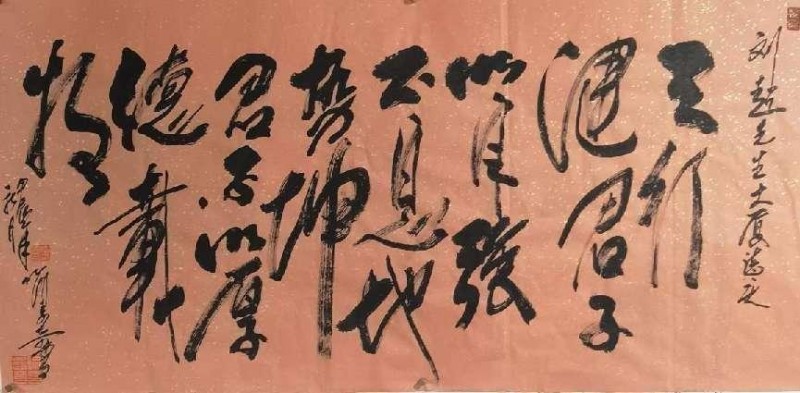 刘赵先生大厦
天行
健君子
以自强
不息地
势坤
君子以厚
德载
物